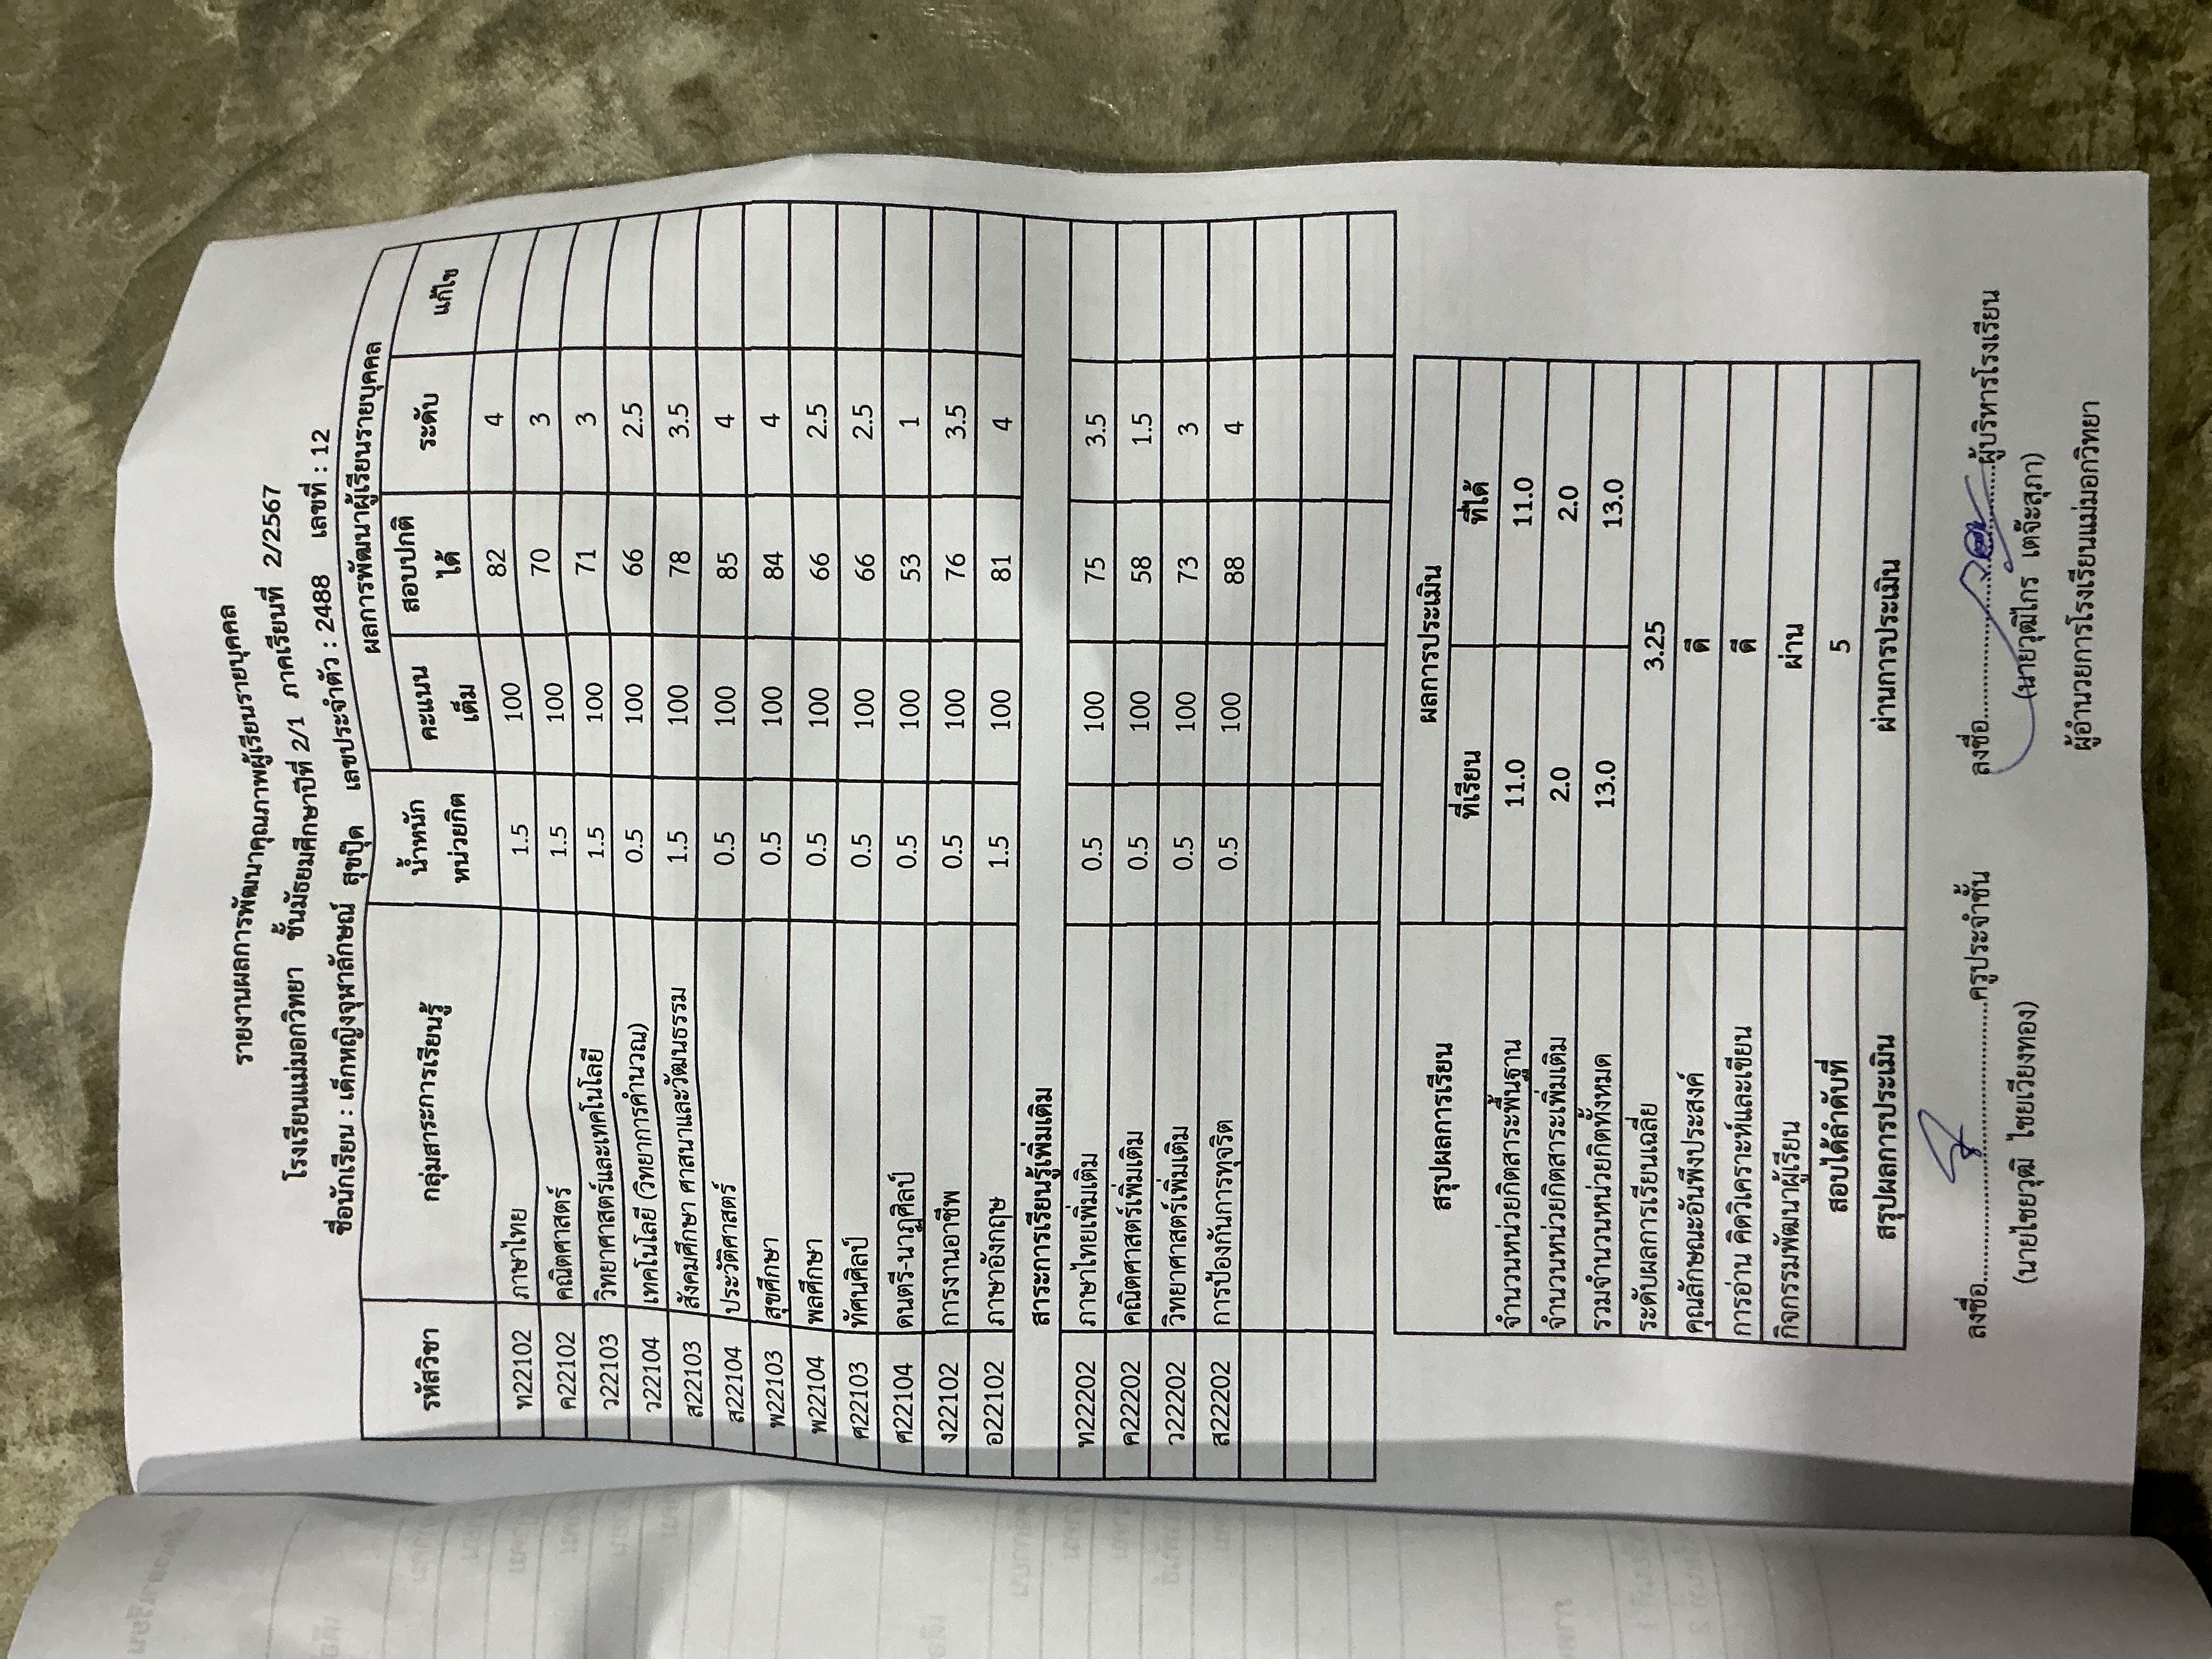 รายงานผลการพัฒนาคุณภาพผู้เรียนรายบุคคล
โรงเรียนแม่มอกวิทยา ชั้นมัธยมศึกษาปีที่ 2/1 ภาคเรียนที่ 2/2567
ชื่อนักเรียน : เด็กหญิงจุฬาลักษณ์ สุขปุ๊ด เลขประจำตัว : 2488 เลขที่ : 12
รหัสวิชา กลุ่มสาระการเรียนรู้ น้ำหนักหน่วยกิต ผลการพัฒนาผู้เรียนรายบุคคล
คะแนนเต็ม สอบปกติได้ ระดับ แก้ไข
ท22102 ภาษาไทย 1.5 100 82 4
ค22102 คณิตศาสตร์ 1.5 100 70 3
ว22103 วิทยาศาสตร์และเทคโนโลยี 1.5 100 71 3
ว22104 เทคโนโลยี (วิทยาการคำนวณ) 0.5 100 66 2.5
ส22103 สังคมศึกษา ศาสนาและวัฒนธรรม 1.5 100 78 3.5
ส22104 ประวัติศาสตร์ 0.5 100 85 4
พ22103 สุขศึกษา 0.5 100 84 4
พ22104 พลศึกษา 0.5 100 66 2.5
ศ22103 ทัศนศิลป์ 0.5 100 66 2.5
ศ22104 ดนตรี-นาฏศิลป์ 0.5 100 53 1
ง22102 การงานอาชีพ 0.5 100 76 3.5
อ22102 ภาษาอังกฤษ 1.5 100 81 4
สาระการเรียนรู้เพิ่มเติม
ท22202 ภาษาไทยเพิ่มเติม 0.5 100 75 3.5
ค22202 คณิตศาสตร์เพิ่มเติม 0.5 100 58 1.5
ว22202 วิทยาศาสตร์เพิ่มเติม 0.5 100 73 3
ส22202 การป้องกันการทุจริต 0.5 100 88 4
สรุปผลการเรียน ผลการประเมิน
ที่เรียน ที่ได้
จำนวนหน่วยกิตสาระพื้นฐาน 11.0 11.0
จำนวนหน่วยกิตสาระเพิ่มเติม 2.0 2.0
รวมจำนวนหน่วยกิตทั้งหมด 13.0 13.0
ระดับผลการเรียนเฉลี่ย 3.25
คุณลักษณะอันพึงประสงค์ ดี
การอ่าน คิดวิเคราะห์และเขียน ดี
กิจกรรมพัฒนาผู้เรียน ผ่าน
สอบได้ลำดับที่ 5
สรุปผลการประเมิน ผ่านการประเมิน
ลงชื่อ..........ครูประจำชั้น ลงชื่อ..........ผู้บริหารโรงเรียน
(นายไชยวุฒิ ไชยเวียงทอง) (นายวุฒิไกร เต๊จ๊ะสุภา)
ผู้อำนวยการโรงเรียนแม่มอกวิทยา